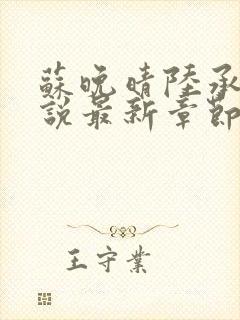 蘇晚晴陸承
說最新章節
王守業